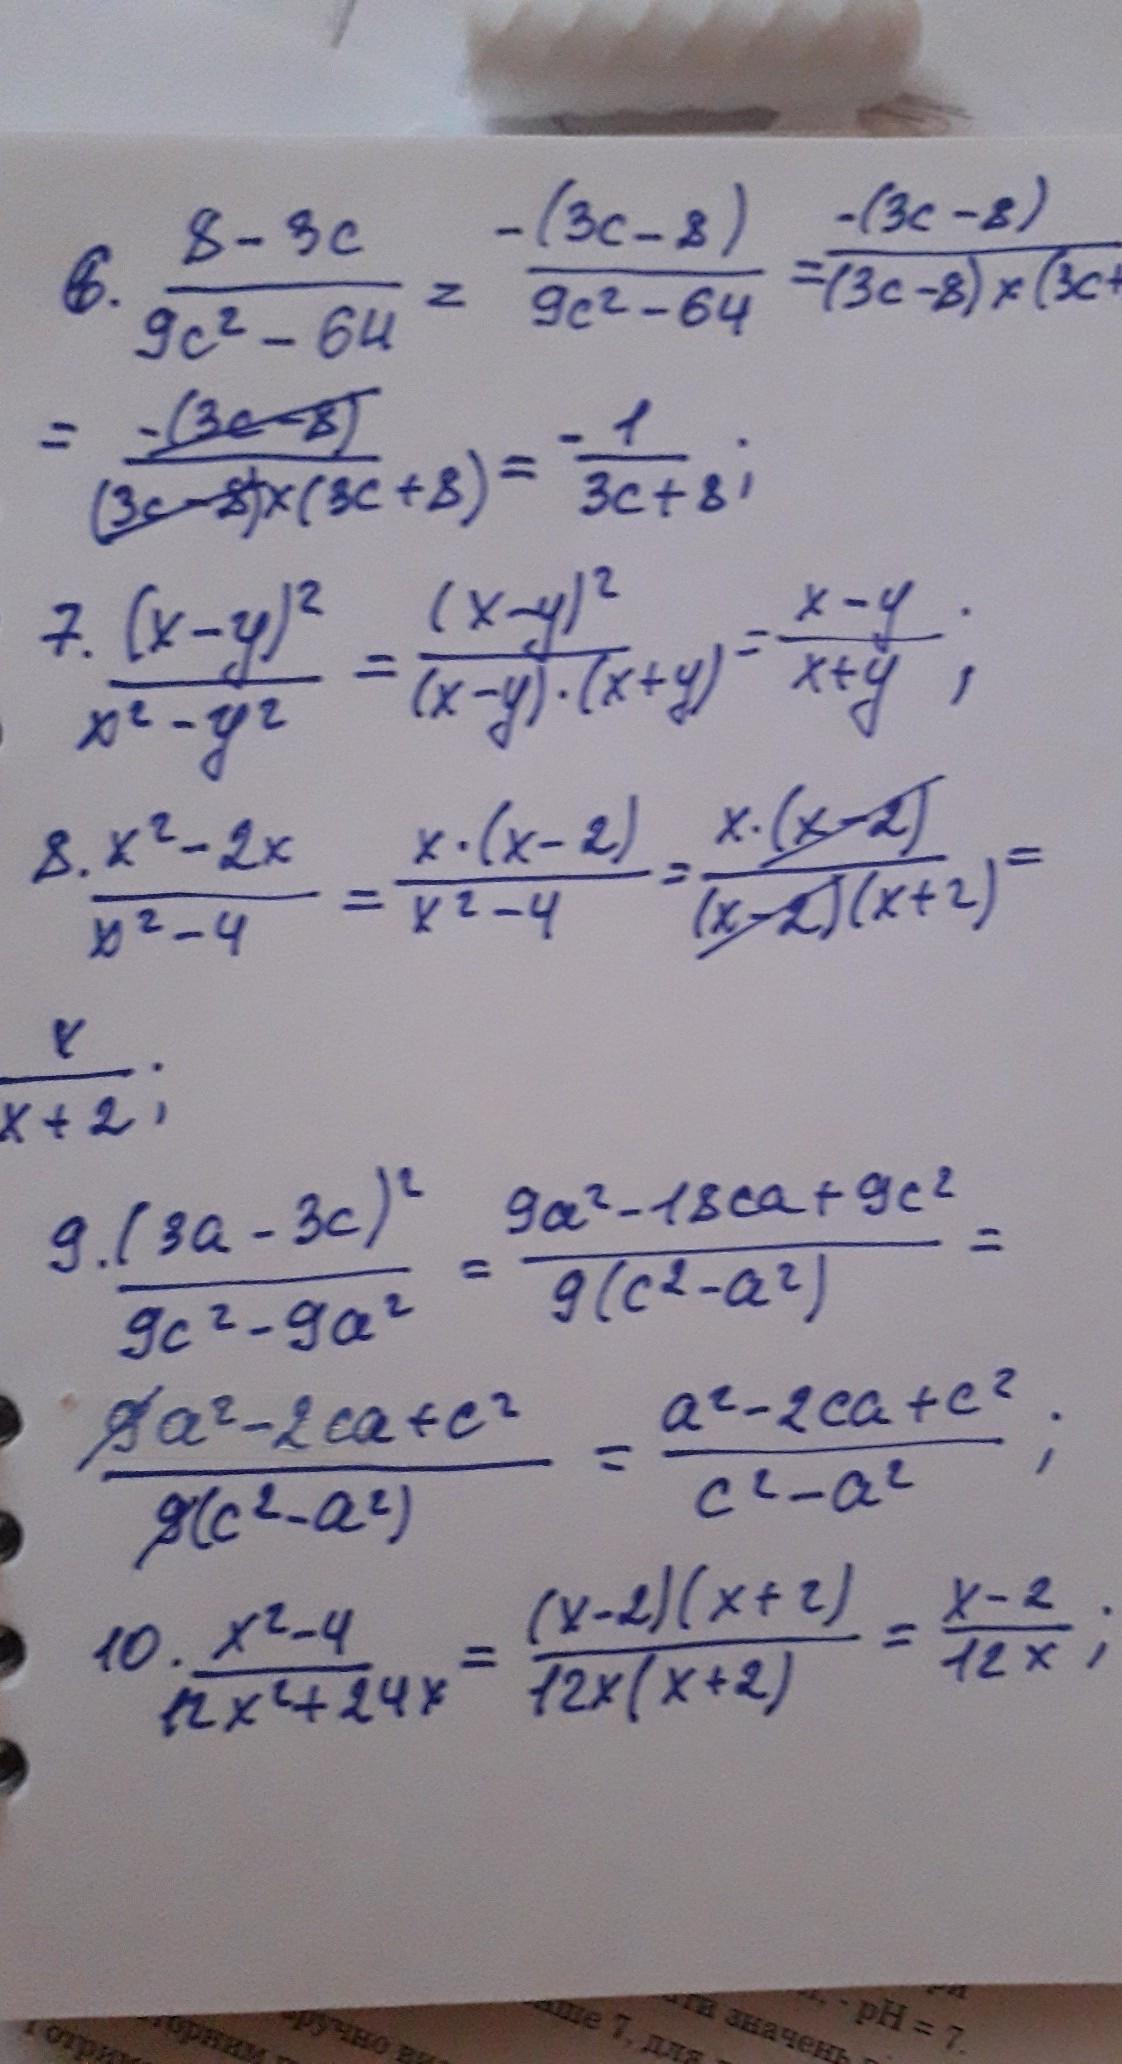 6. (8 - 3c)/(9c² - 64) = (-(3c - 8))/(9c² - 64) = (-(3c - 8))/((3c - 8) × (3c+
= (-(3c - 8))/((3c - 8) × (3c + 8)) = -1/(3c + 8);
7. (x - y)²/(x² - y²) = (x - y)²/((x - y) · (x + y)) = (x - y)/(x + y);
8. (x² - 2x)/(x² - 4) = (x · (x - 2))/(x² - 4) = (x · (x - 2))/((x - 2)(x + 2)) =
x/(x + 2);
9. (3a - 3c)²/(9c² - 9a²) = (9a² - 18ca + 9c²)/(9(c² - a²)) =
(9a² - 2ca + c²)/(9(c² - a²)) = (a² - 2ca + c²)/(c² - a²);
10. (x² - 4)/(12x² + 24x) = ((x - 2)(x + 2))/(12x(x + 2)) = (x - 2)/(12x);
- pH = 7.
значень
7, для